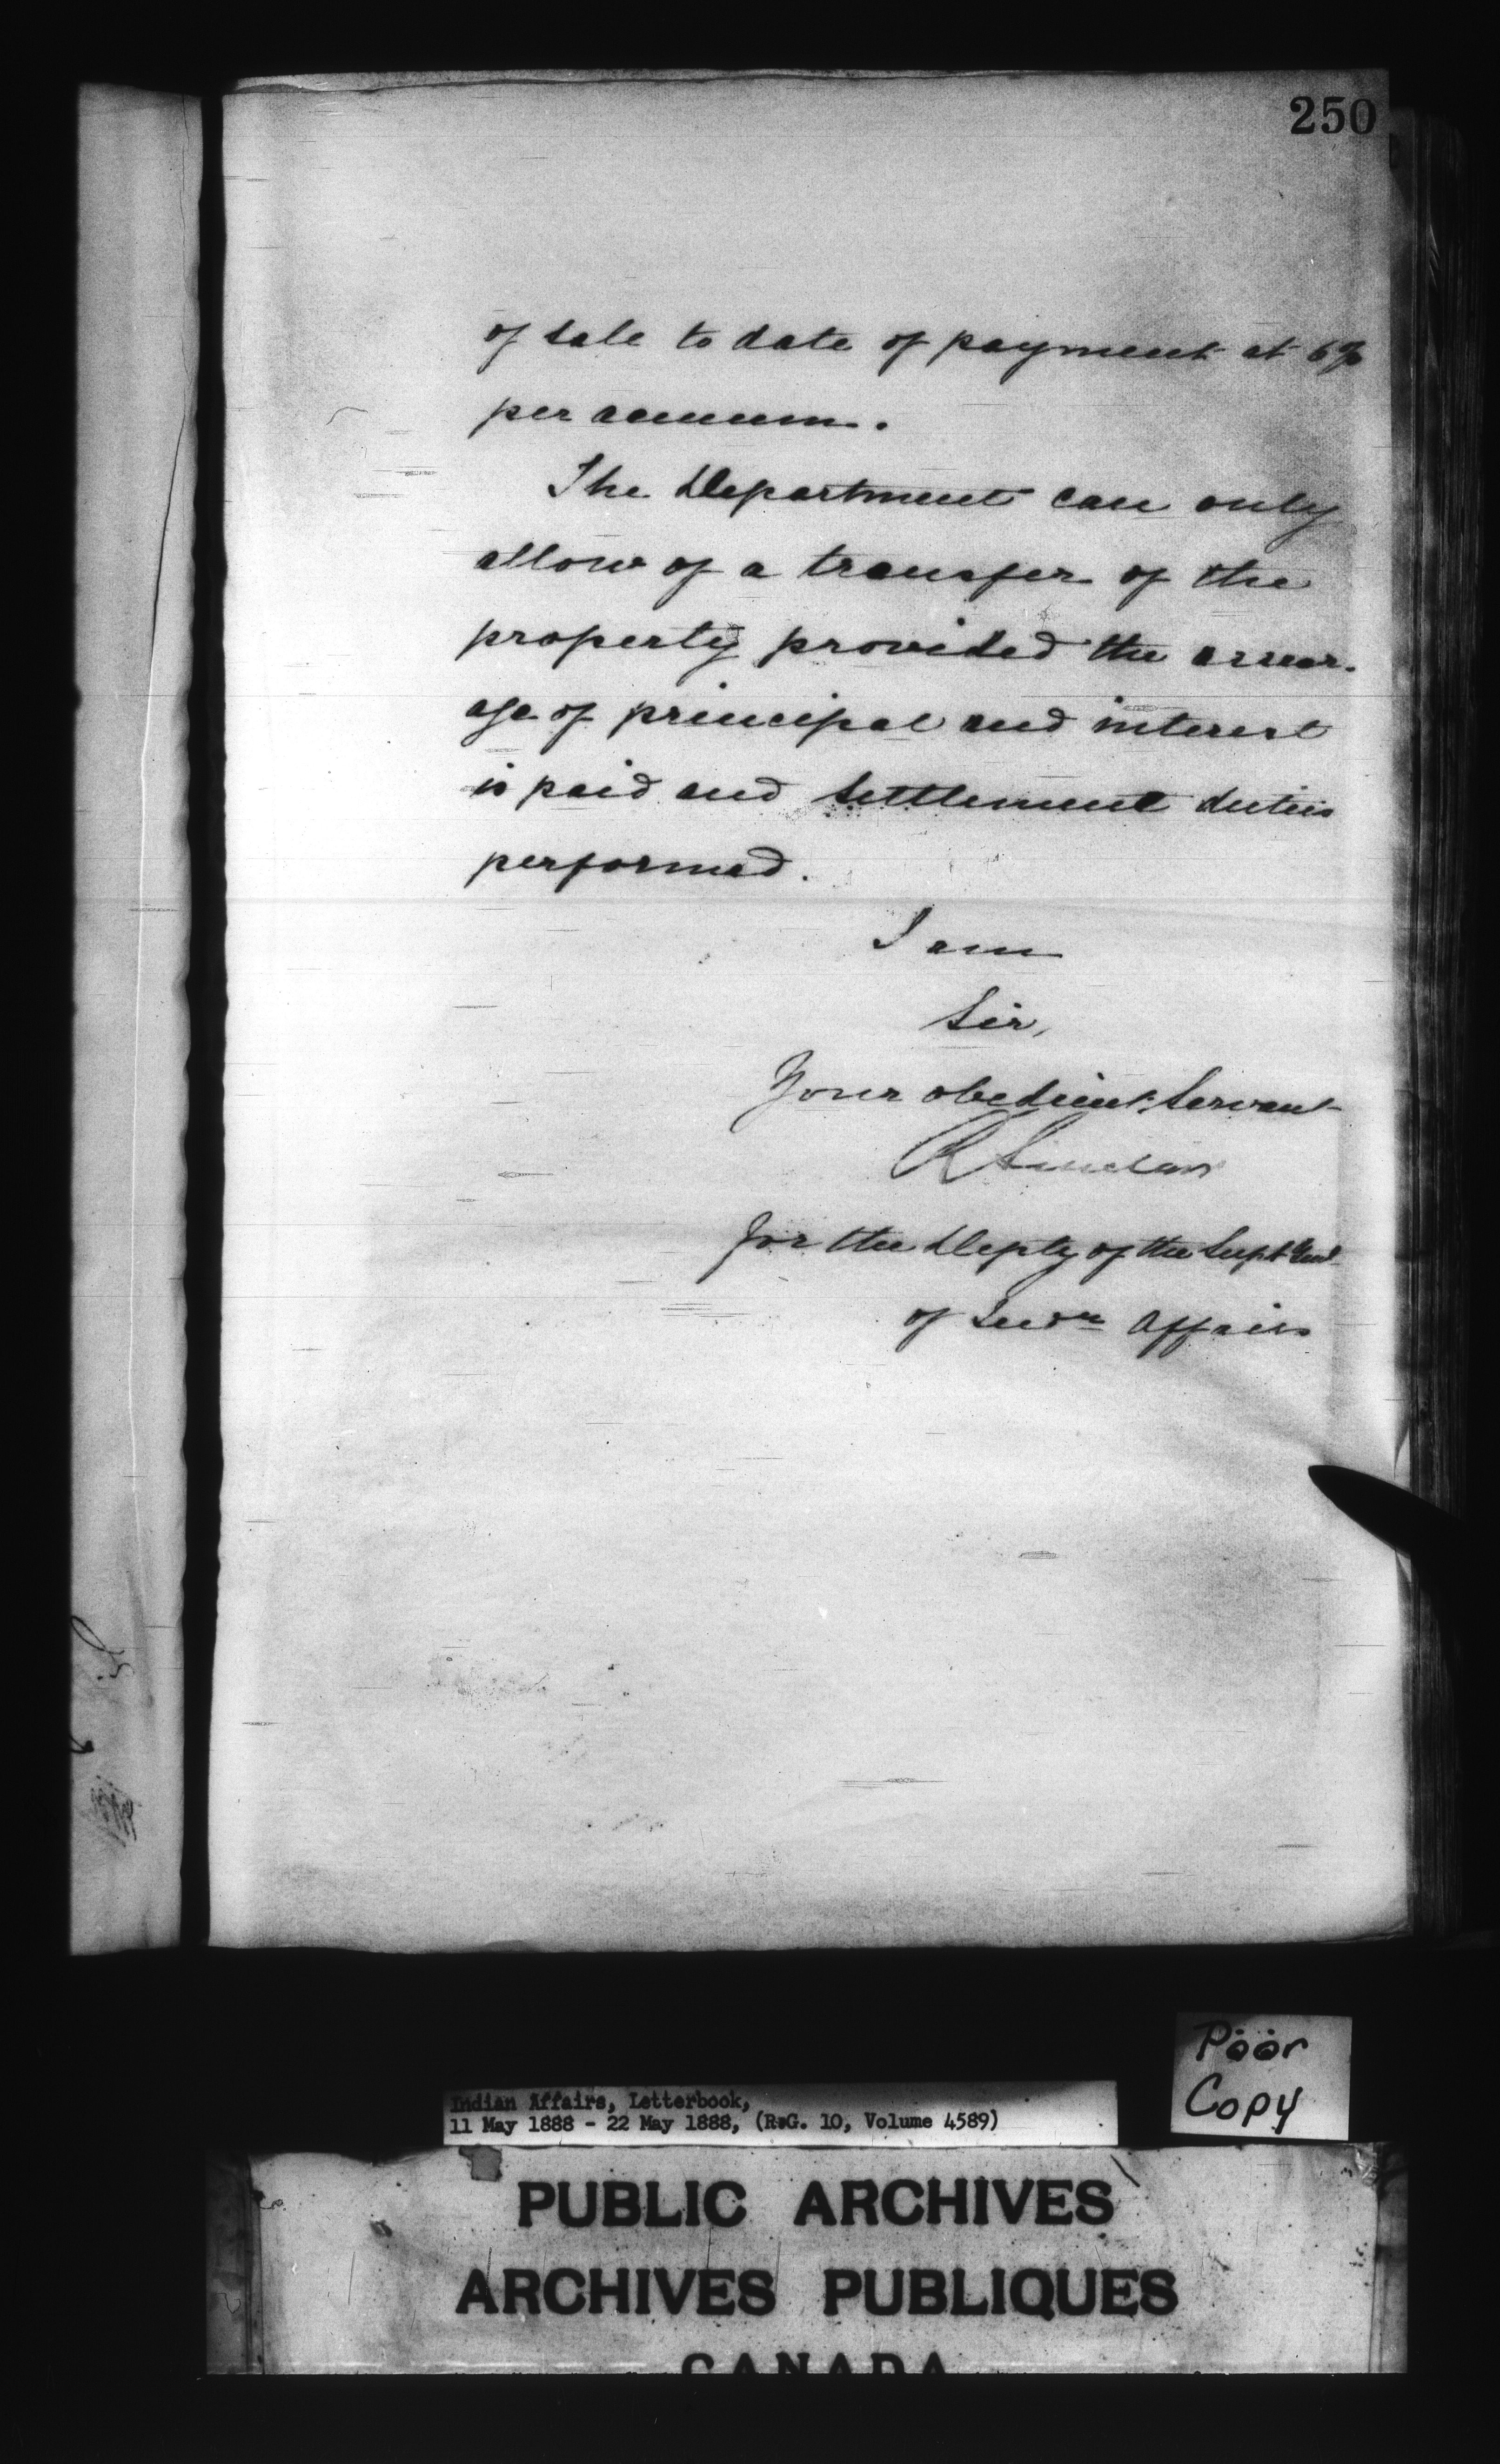 250
of sale to date of payment at 6%
per annum.
The Department can only
allow of a transfer of the
property provided the arrear-
age of principal and interest
is paid and settlement duties
performed.
I am
Sir,
Your obedient Servant
R Sinclair
for the Depty of the Supt Genl
of Indn Affairs
Poor
Copy
Indian Affairs, Letterbook,
11 May 1888 - 22 May 1888, (R.G. 10, Volume 4589)
PUBLIC ARCHIVES
ARCHIVES PUBLIQUES
CANADA